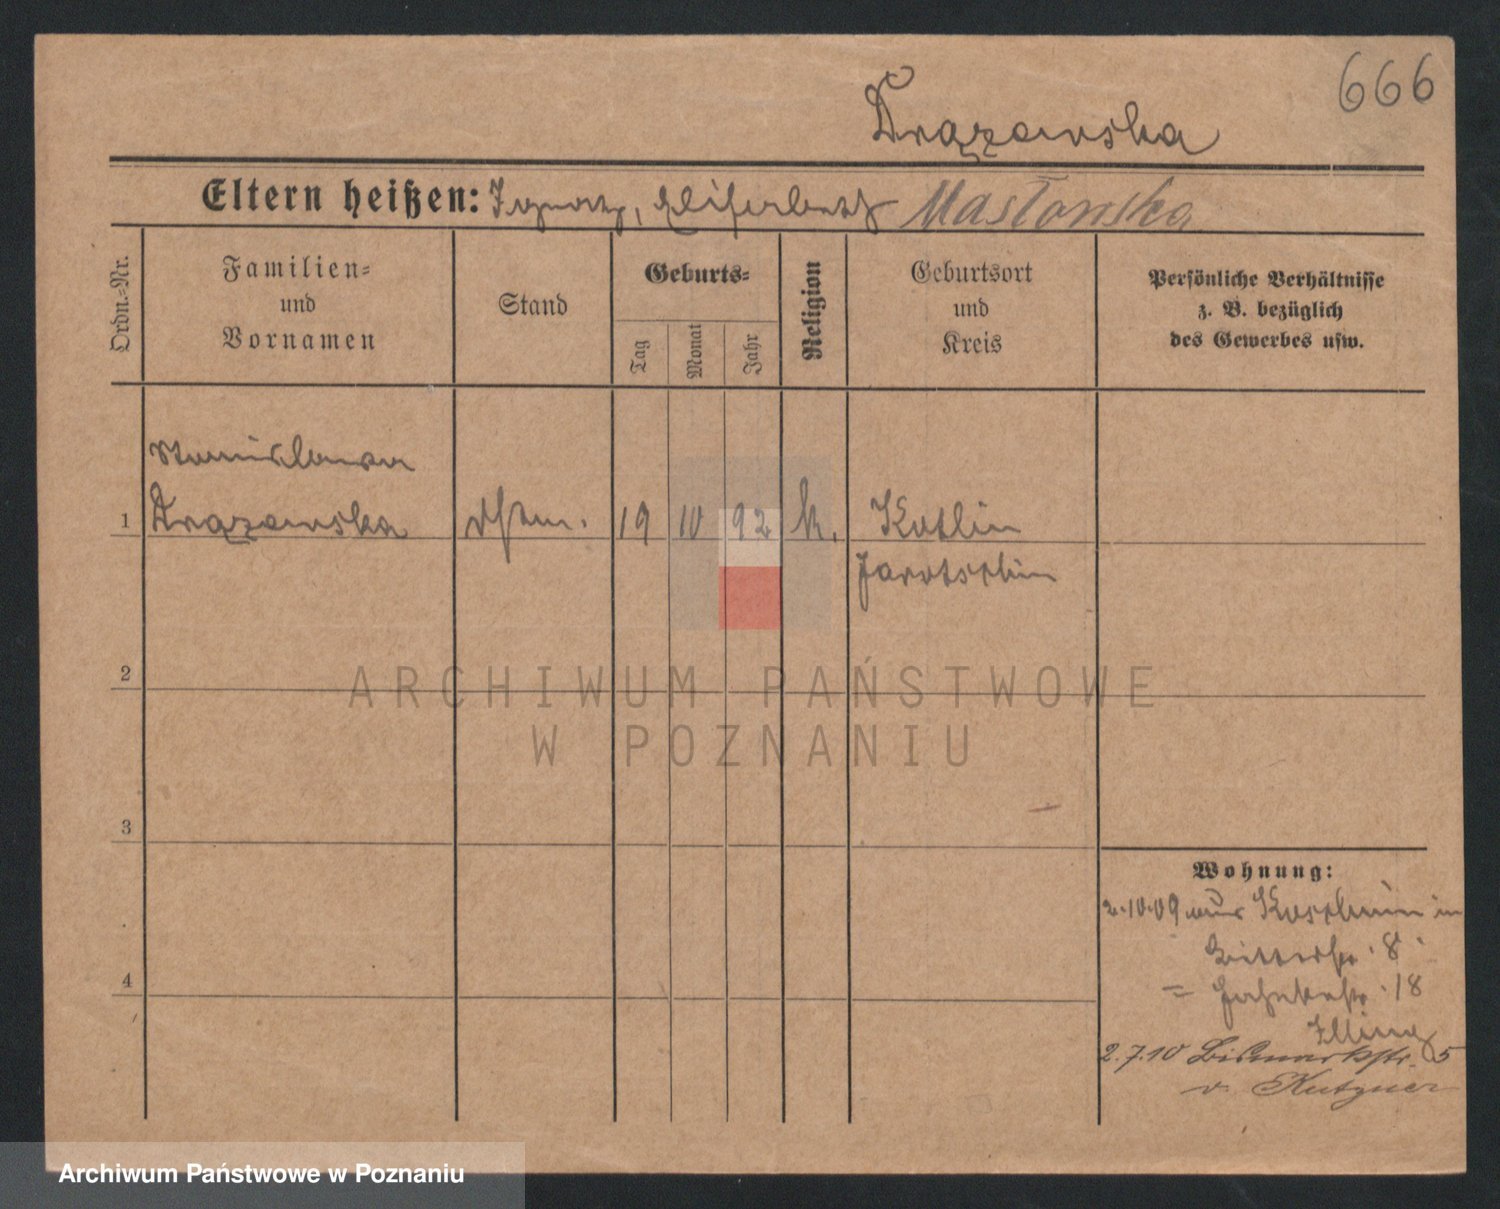 666
Drązewska
Eltern heißen: Ignatz, Elisabeth Masłowska
Ordn.-Nr.
Familien-
und
Vornamen
Stand
Geburts-
Tag
Monat
Jahr
Religion
Geburtsort
und
Kreis
Persönliche Verhältnisse
z. B. bezüglich
des Gewerbes usw.
Stanislawa
1 Drązewska 19 10 92 k. Kotlin
Jarotschin
2
3
4
Wohnung:
2.10.09 aus in
Ritterstr. 8
= 18
2.7.10 Bismarckstr. 5
v. Kutzner
ARCHIWUM PAŃSTWOWE
W POZNANIU
Archiwum Państwowe w Poznaniu